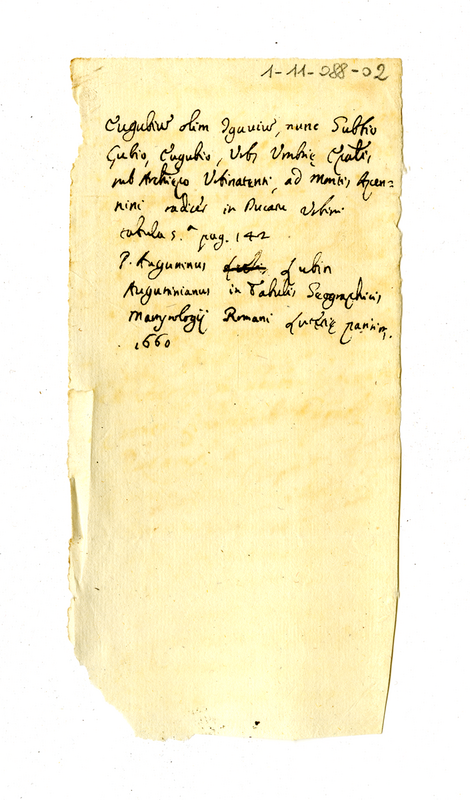 1-11-088-02
Eugubiũ olim Iguuiũ, nunc Subbio
Gubio, Eugubio, Urbs Umbrię
sub Archiepo Urbinatensi, ad montis Apen=
nini radices in Ducatu Urbini
tabula 5.ª pag. 142
P. Augustinus Lubin
Augustinianus in Tabulis Geographicis
Martyrologij Romani Lutetię parisior.
1660